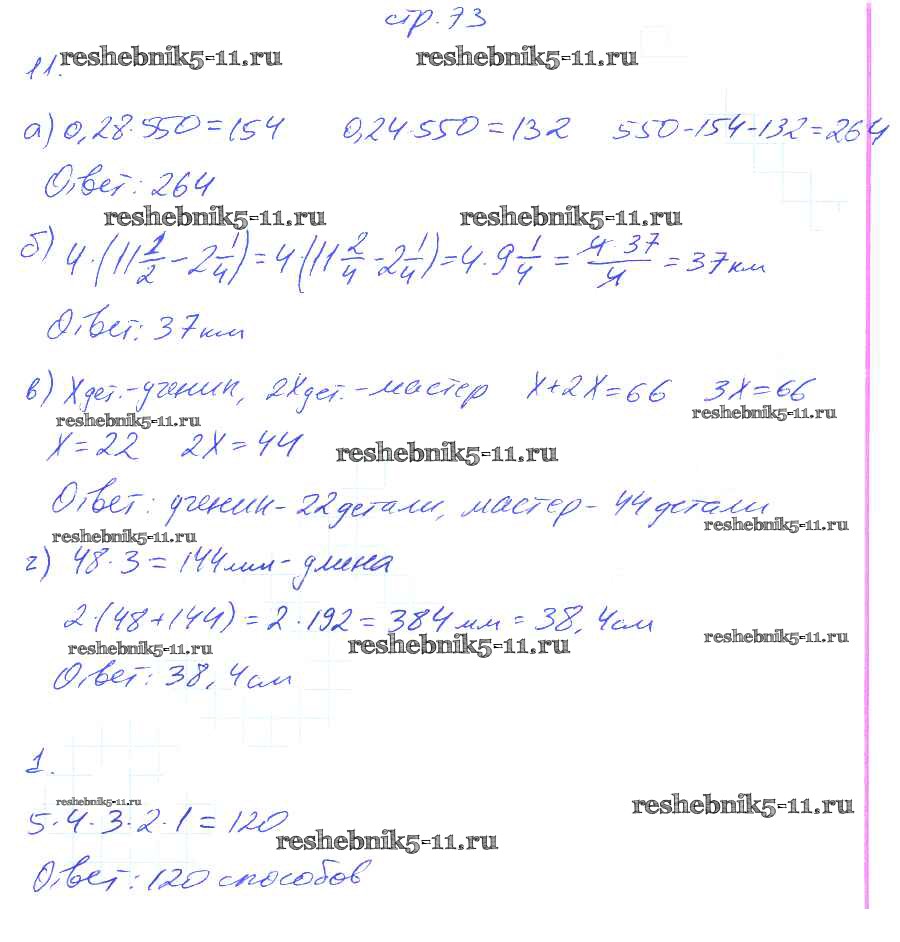 стр. 73
reshebnik5-11.ru reshebnik5-11.ru
11.
а) 0,28·550=154 0,24·550=132 550-154-132=264
Ответ: 264
reshebnik5-11.ru reshebnik5-11.ru
б) 4·(11 1/2 - 2 1/4)=4·(11 2/4 - 2 1/4)=4·9 1/4 = 4·37/4 = 37 км
Ответ: 37 км
в) X дет.-ученик, 2X дет.-мастер X+2X=66 3X=66
reshebnik5-11.ru reshebnik5-11.ru
X=22 2X=44 reshebnik5-11.ru
Ответ: ученик-22 детали, мастер-44 детали
reshebnik5-11.ru reshebnik5-11.ru
г) 48·3=144 мм-длина
2·(48+144)=2·192=384 мм=38,4 см
reshebnik5-11.ru reshebnik5-11.ru reshebnik5-11.ru
Ответ: 38,4 см
1.
reshebnik5-11.ru reshebnik5-11.ru
5·4·3·2·1=120
reshebnik5-11.ru
Ответ: 120 способов